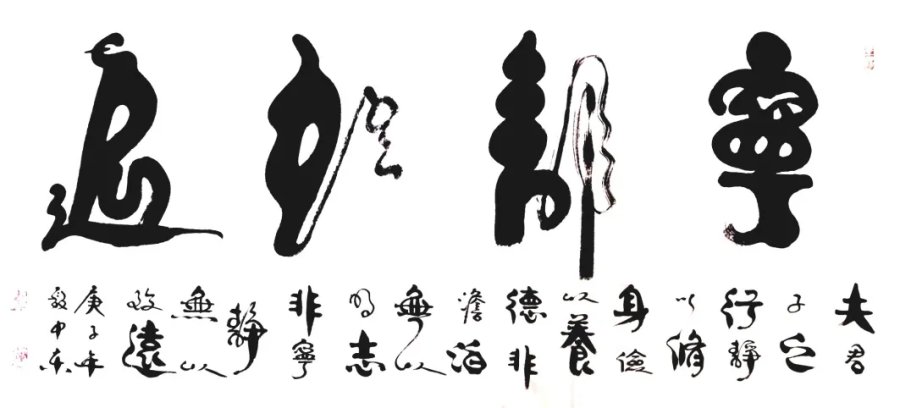 寧靜致遠
夫君
子之
行靜
以脩
身儉
以養
德非
澹泊
無以
明志
非寧
靜
無以
致遠
庚子年